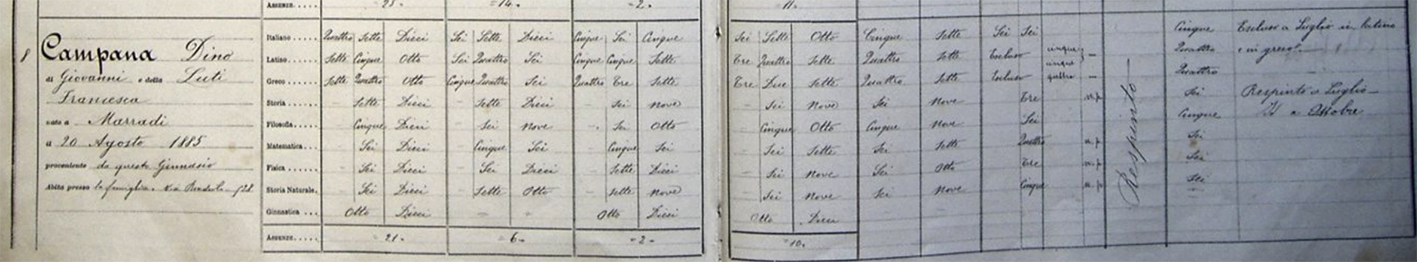 Assenze..... =23- =14- =2- 11-
8 Campana Dino
di Giovanni e della Luti
Francesca
nato a Marradi
a 20 Agosto 1885
proveniente da questo Ginnasio
Abita presso la famiglia
Italiano... Quattro Sette Dieci Sei Sette Dieci Cinque Sei Cinque Sei Sette Otto Cinque Sette Sei Sei Cinque Escluso a Luglio in latino
Latino.... Sette Cinque Otto Sei Quattro Sei Cinque Cinque Sette Tre Quattro Sette Quattro Sette Escluso cinque - Quattro e in greco
Greco.... Sette Quattro Otto Cinque Quattro Sei Quattro Tre Sette Tre Due Sette Quattro Sette Escluso quattro - Quattro
Storia.... - Sette Dieci - Sette Dieci - Sei Nove - Sei Nove Sei Nove Tre Sei Respinto a Luglio
Filosofia... - Cinque Dieci - Sei Nove - Sei Otto - Cinque Otto Cinque Nove Sei Cinque Id a Ottobre
Matematica... - Sei Dieci - Cinque Sei - Cinque Sei - Sei Sette Sei Sette Quattro Sei
Fisica.... - Sei Dieci - Sei Dieci - Sette Dieci - Sei Nove Sei Otto Tre Sei
Storia Naturale.. - Sei Dieci - Sette Otto - Sette Nove - Sei Nove Sei Nove Cinque Sei
Ginnastica... Otto Dieci - - Otto Dieci Otto Dieci
Assenze..... =21- =6- =2- =10-
Respinto